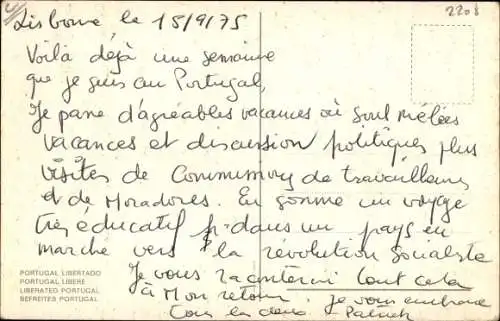 2208
Lisbonne le 15/9/75
Voilà déjà une semaine
que je suis au Portugal,
Je passe d'agréables vacances où sont mêlées
vacances et discussion politiques plus
visites de Commissions de travailleurs
et de Moradores. En somme un voyage
très éducatif dans un pays en
marche vers la révolution socialiste
Je vous raconterai tout cela
à Mon retour. Je vous embrasse
Tous les deux
PORTUGAL LIBERTADO
PORTUGAL LIBERE
LIBERATED PORTUGAL
BEFREITES PORTUGAL